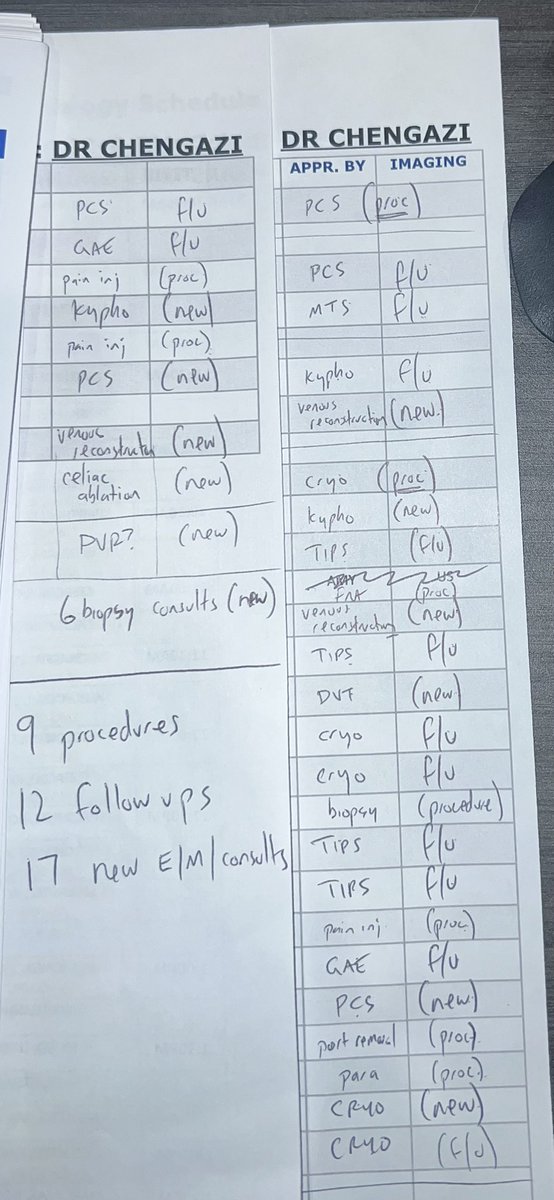 : DR CHENGAZI
PCS f/u
GAE f/u
pain inj (proc)
Kypho (new)
pain inj (proc)
PCS (new)
venous reconstruction (new)
celiac ablation (new)
PVR? (new)
6 biopsy consults (new)
9 procedures
12 follow ups
17 new E/M/consults
DR CHENGAZI
APPR. BY IMAGING
PCS (proc)
PCS f/u
MTS f/u
Kypho f/u
venous reconstruction (new)
cryo (proc)
kypho (new)
TIPS (f/u)
FNA (proc)
venous reconstruction (new)
TIPS f/u
DVT (new)
cryo f/u
cryo f/u
biopsy (procedure)
TIPS f/u
TIPS f/u
pain inj (proc)
GAE f/u
PCS (new)
port removal (proc)
para (proc)
CRYO (new)
CRYO (f/u)